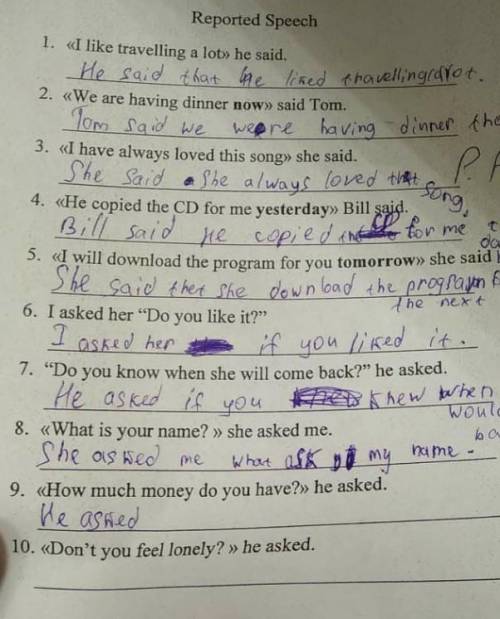 Reported Speech
1. «I like travelling a lot» he said.
He said that he liked travelling a lot.
2. «We are having dinner now» said Tom.
Tom said we were having dinner the
3. «I have always loved this song» she said.
She said she always loved that
song.
4. «He copied the CD for me yesterday» Bill said.
Bill said he copied CD for me
5. «I will download the program for you tomorrow» she said
She said thet she download the program
the next
6. I asked her “Do you like it?”
I asked her if you liked it.
7. “Do you know when she will come back?” he asked.
He asked if you knew when
would
8. «What is your name? » she asked me.
She asked me what my name.
9. «How much money do you have?» he asked.
He asked
10. «Don’t you feel lonely? » he asked.